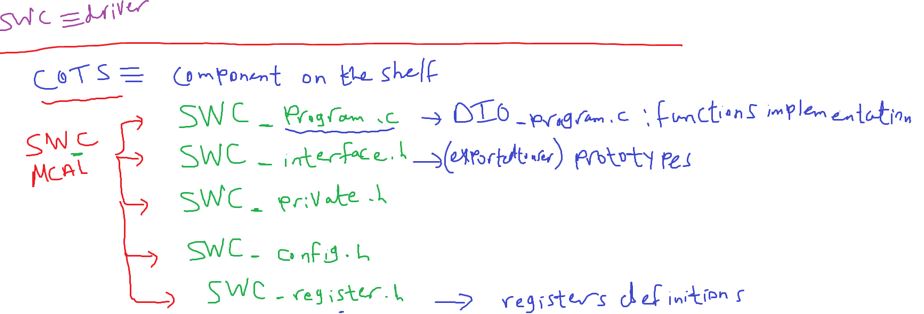 SWC ≡ driver
COTS ≡ component on the shelf
SWC MCAL
SWC_Program.c → DIO_program.c : functions implementation
SWC_interface.h → (exported to user) prototypes
SWC_private.h
SWC_config.h
SWC_register.h → registers definitions